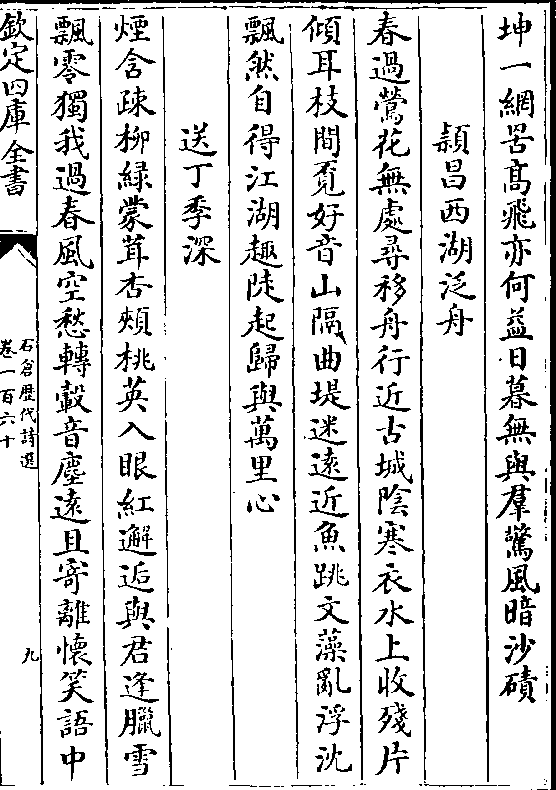 坤一網罟髙飛亦何益日暮無與羣驚風暗沙磧
頴昌西湖泛舟
春過鶯花無處尋移舟行近古城陰寒衣水上收殘片
傾耳枝間覔好音山隔曲堤迷遠近魚跳文藻亂浮沈
飄然自得江湖趣陡起歸與萬里心
送丁季深
煙含疎柳緑蒙茸杏頰桃英入眼紅邂逅與君逢臘雪
飄零獨我過春風空愁轉轂音塵遠且寄離懷笑語中
欽定四庫全書
石倉歷代詩選
卷一百六十
九